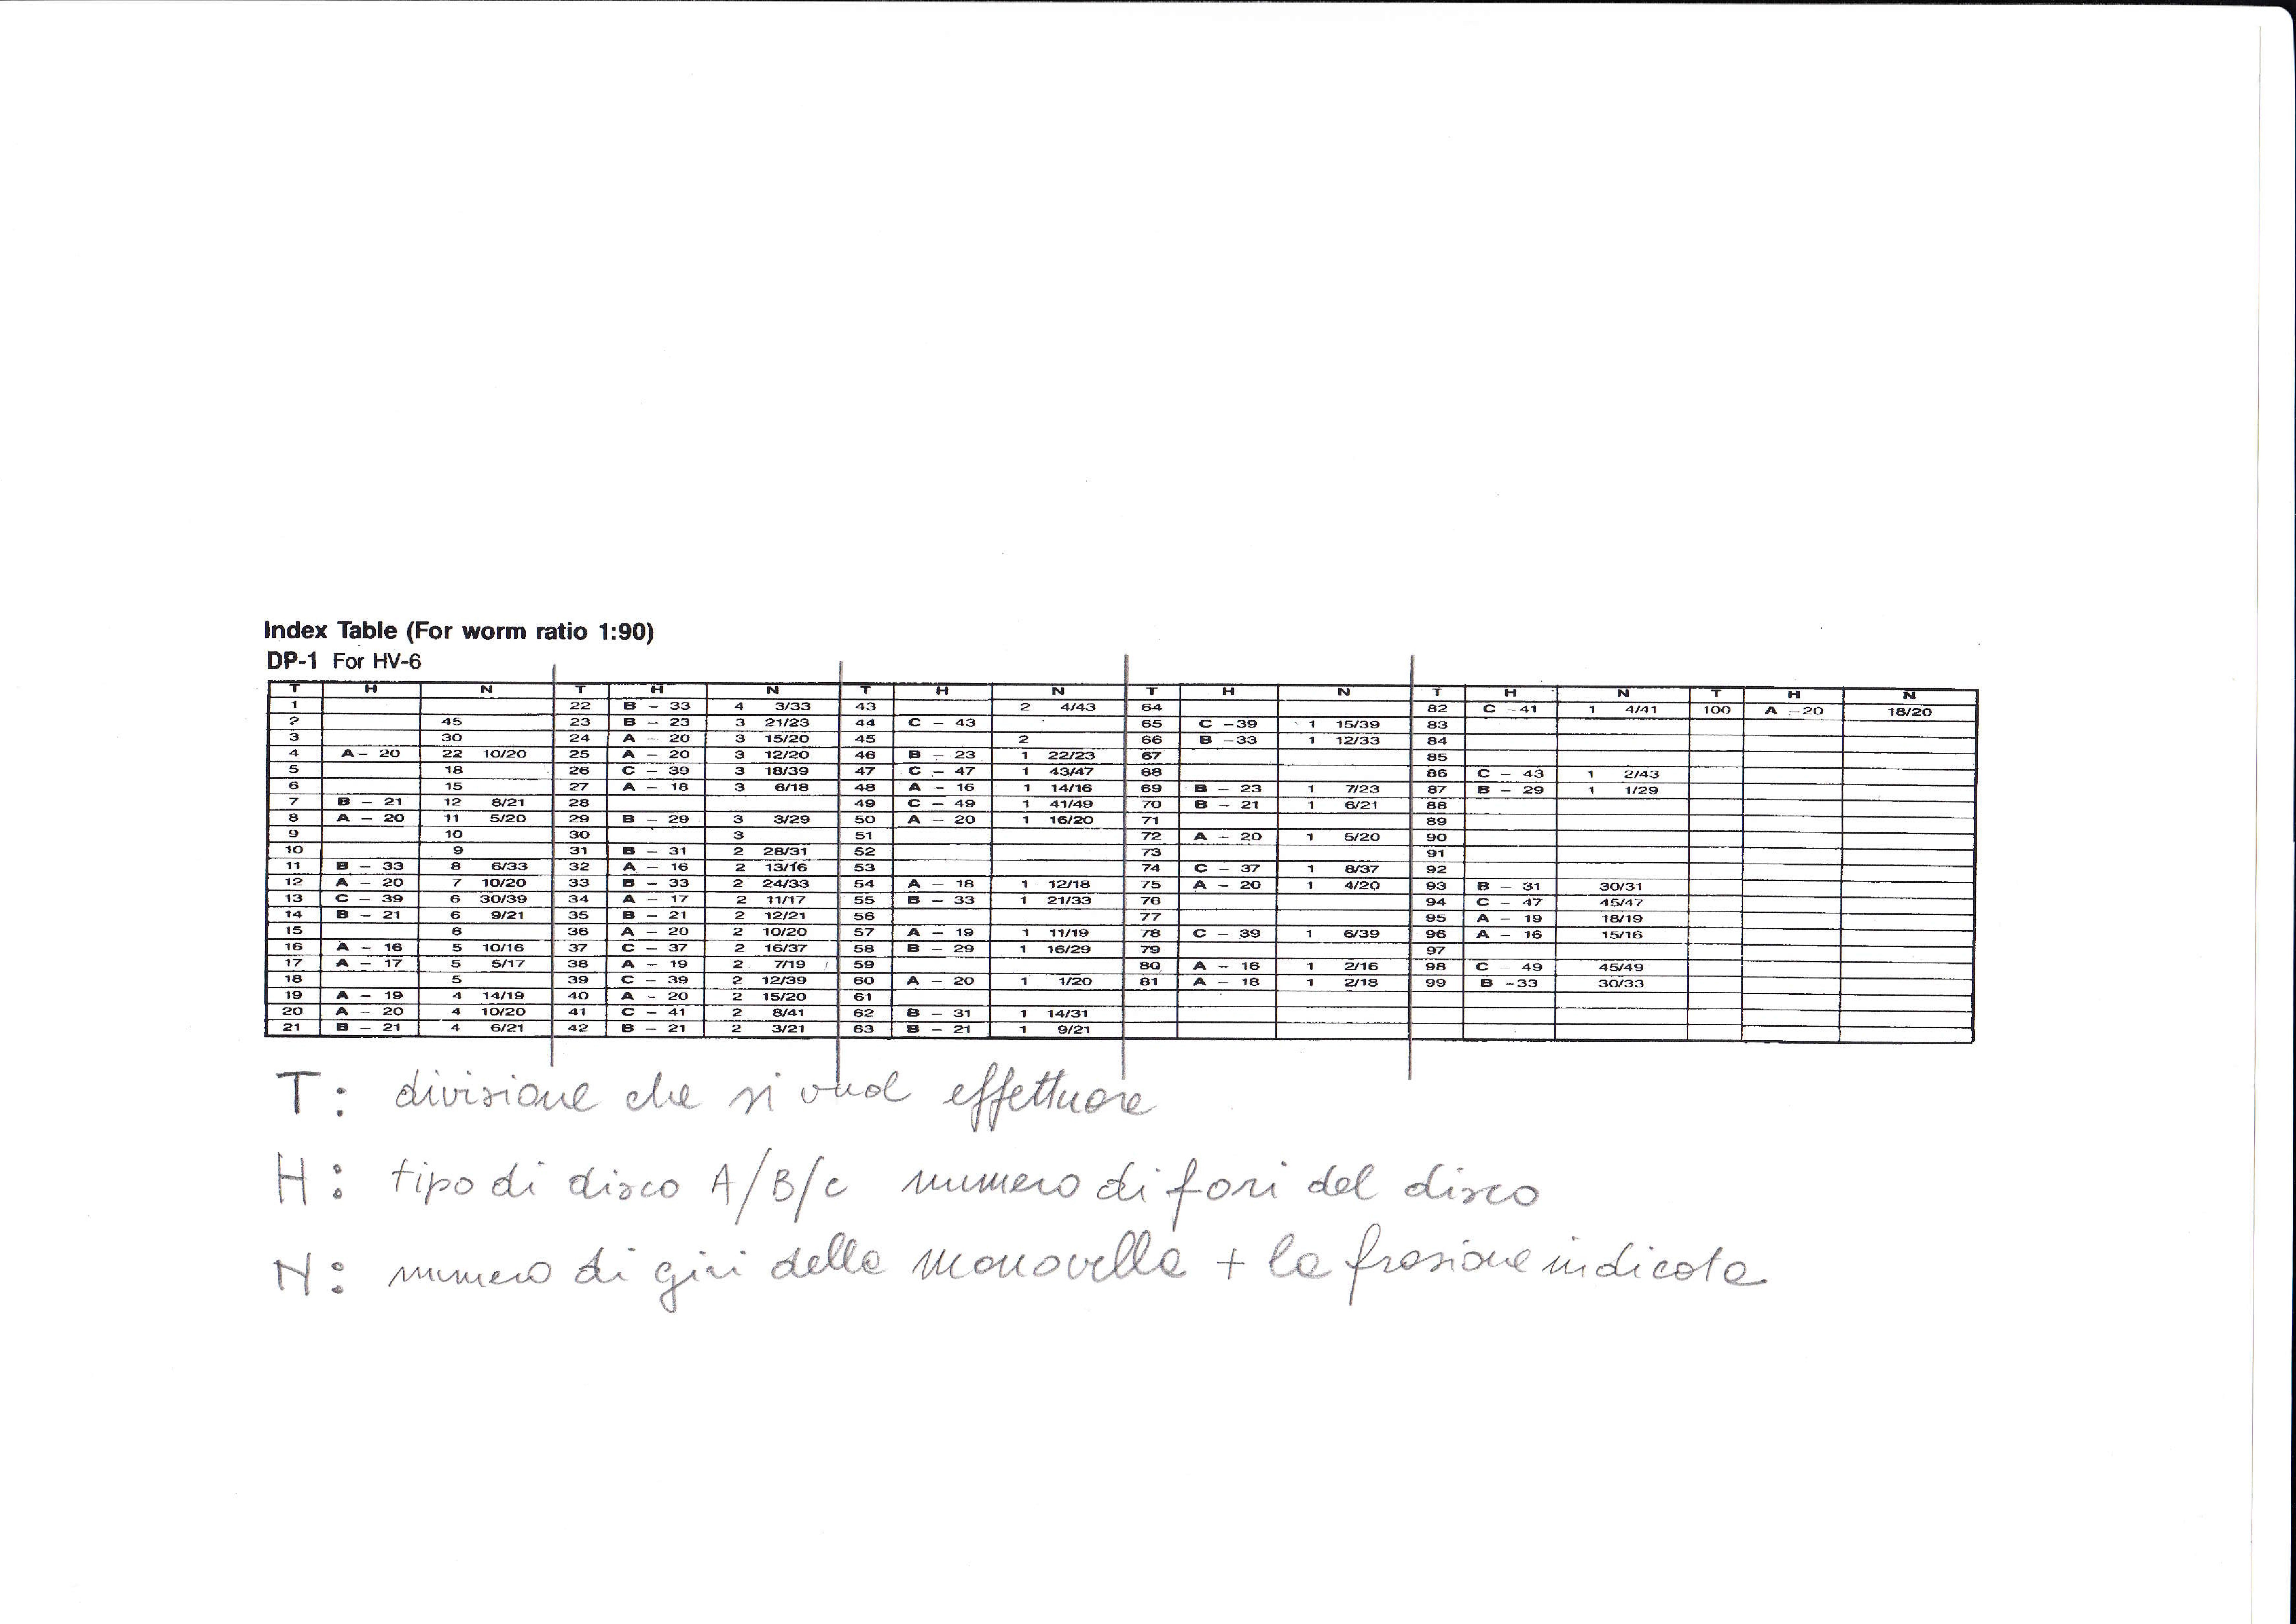 Index Table (For worm ratio 1:90)
DP-1 For HV-6
T H N T H N T H N T H N T H N T H N
1 22 B – 33 4 3/33 43 2 4/43 64 82 C –41 1 4/41 100 A –20 18/20
2 45 23 B – 23 3 21/23 44 C – 43 65 C –39 1 15/39 83
3 30 24 A – 20 3 15/20 45 2 66 B –33 1 12/33 84
4 A– 20 22 10/20 25 A – 20 3 12/20 46 B – 23 1 22/23 67 85
5 18 26 C – 39 3 18/39 47 C – 47 1 43/47 68 86 C – 43 1 2/43
6 15 27 A – 18 3 6/18 48 A – 16 1 14/16 69 B – 23 1 7/23 87 B – 29 1 1/29
7 B – 21 12 8/21 28 49 C – 49 1 41/49 70 B – 21 1 6/21 88
8 A – 20 11 5/20 29 B – 29 3 3/29 50 A – 20 1 16/20 71 89
9 10 30 3 51 72 A – 20 1 5/20 90
10 9 31 B – 31 2 28/31 52 73 91
11 B – 33 8 6/33 32 A – 16 2 13/16 53 74 C – 37 1 8/37 92
12 A – 20 7 10/20 33 B – 33 2 24/33 54 A – 18 1 12/18 75 A – 20 1 4/20 93 B – 31 30/31
13 C – 39 6 30/39 34 A – 17 2 11/17 55 B – 33 1 21/33 76 94 C – 47 45/47
14 B – 21 6 9/21 35 B – 21 2 12/21 56 77 95 A – 19 18/19
15 6 36 A – 20 2 10/20 57 A – 19 1 11/19 78 C – 39 1 6/39 96 A – 16 15/16
16 A – 16 5 10/16 37 C – 37 2 16/37 58 B – 29 1 16/29 79 97
17 A – 17 5 5/17 38 A – 19 2 7/19 59 80 A – 16 1 2/16 98 C – 49 45/49
18 5 39 C – 39 2 12/39 60 A – 20 1 1/20 81 A – 18 1 2/18 99 B –33 30/33
19 A – 19 4 14/19 40 A – 20 2 15/20 61
20 A – 20 4 10/20 41 C – 41 2 8/41 62 B – 31 1 14/31
21 B – 21 4 6/21 42 B – 21 2 3/21 63 B – 21 1 9/21
T: divisione che si vuol effettuare
H: tipo di disco A/B/C numero di fori del disco
N: numero di giri della manovella + la frazione indicata